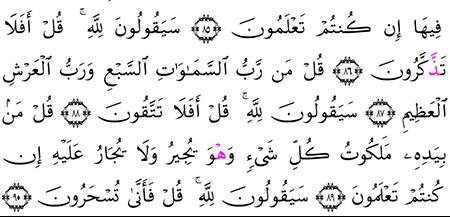 فِيهَا إِن كُنتُمْ تَعْلَمُونَ ۝٨٥ سَيَقُولُونَ لِلَّهِ ۚ قُلْ أَفَلَا
تَذَّكَّرُونَ ۝٨٦ قُلْ مَن رَّبُّ ٱلسَّمَٰوَٰتِ ٱلسَّبْعِ وَرَبُّ ٱلْعَرْشِ
ٱلْعَظِيمِ ۝٨٧ سَيَقُولُونَ لِلَّهِ ۚ قُلْ أَفَلَا تَتَّقُونَ ۝٨٨ قُلْ مَنۢ
بِيَدِهِۦ مَلَكُوتُ كُلِّ شَىْءٍ وَهْوَ يُجِيرُ وَلَا يُجَارُ عَلَيْهِ إِن
كُنتُمْ تَعْلَمُونَ ۝٨٩ سَيَقُولُونَ لِلَّهِ ۚ قُلْ فَأَنَّىٰ تُسْحَرُونَ ۝٩٠